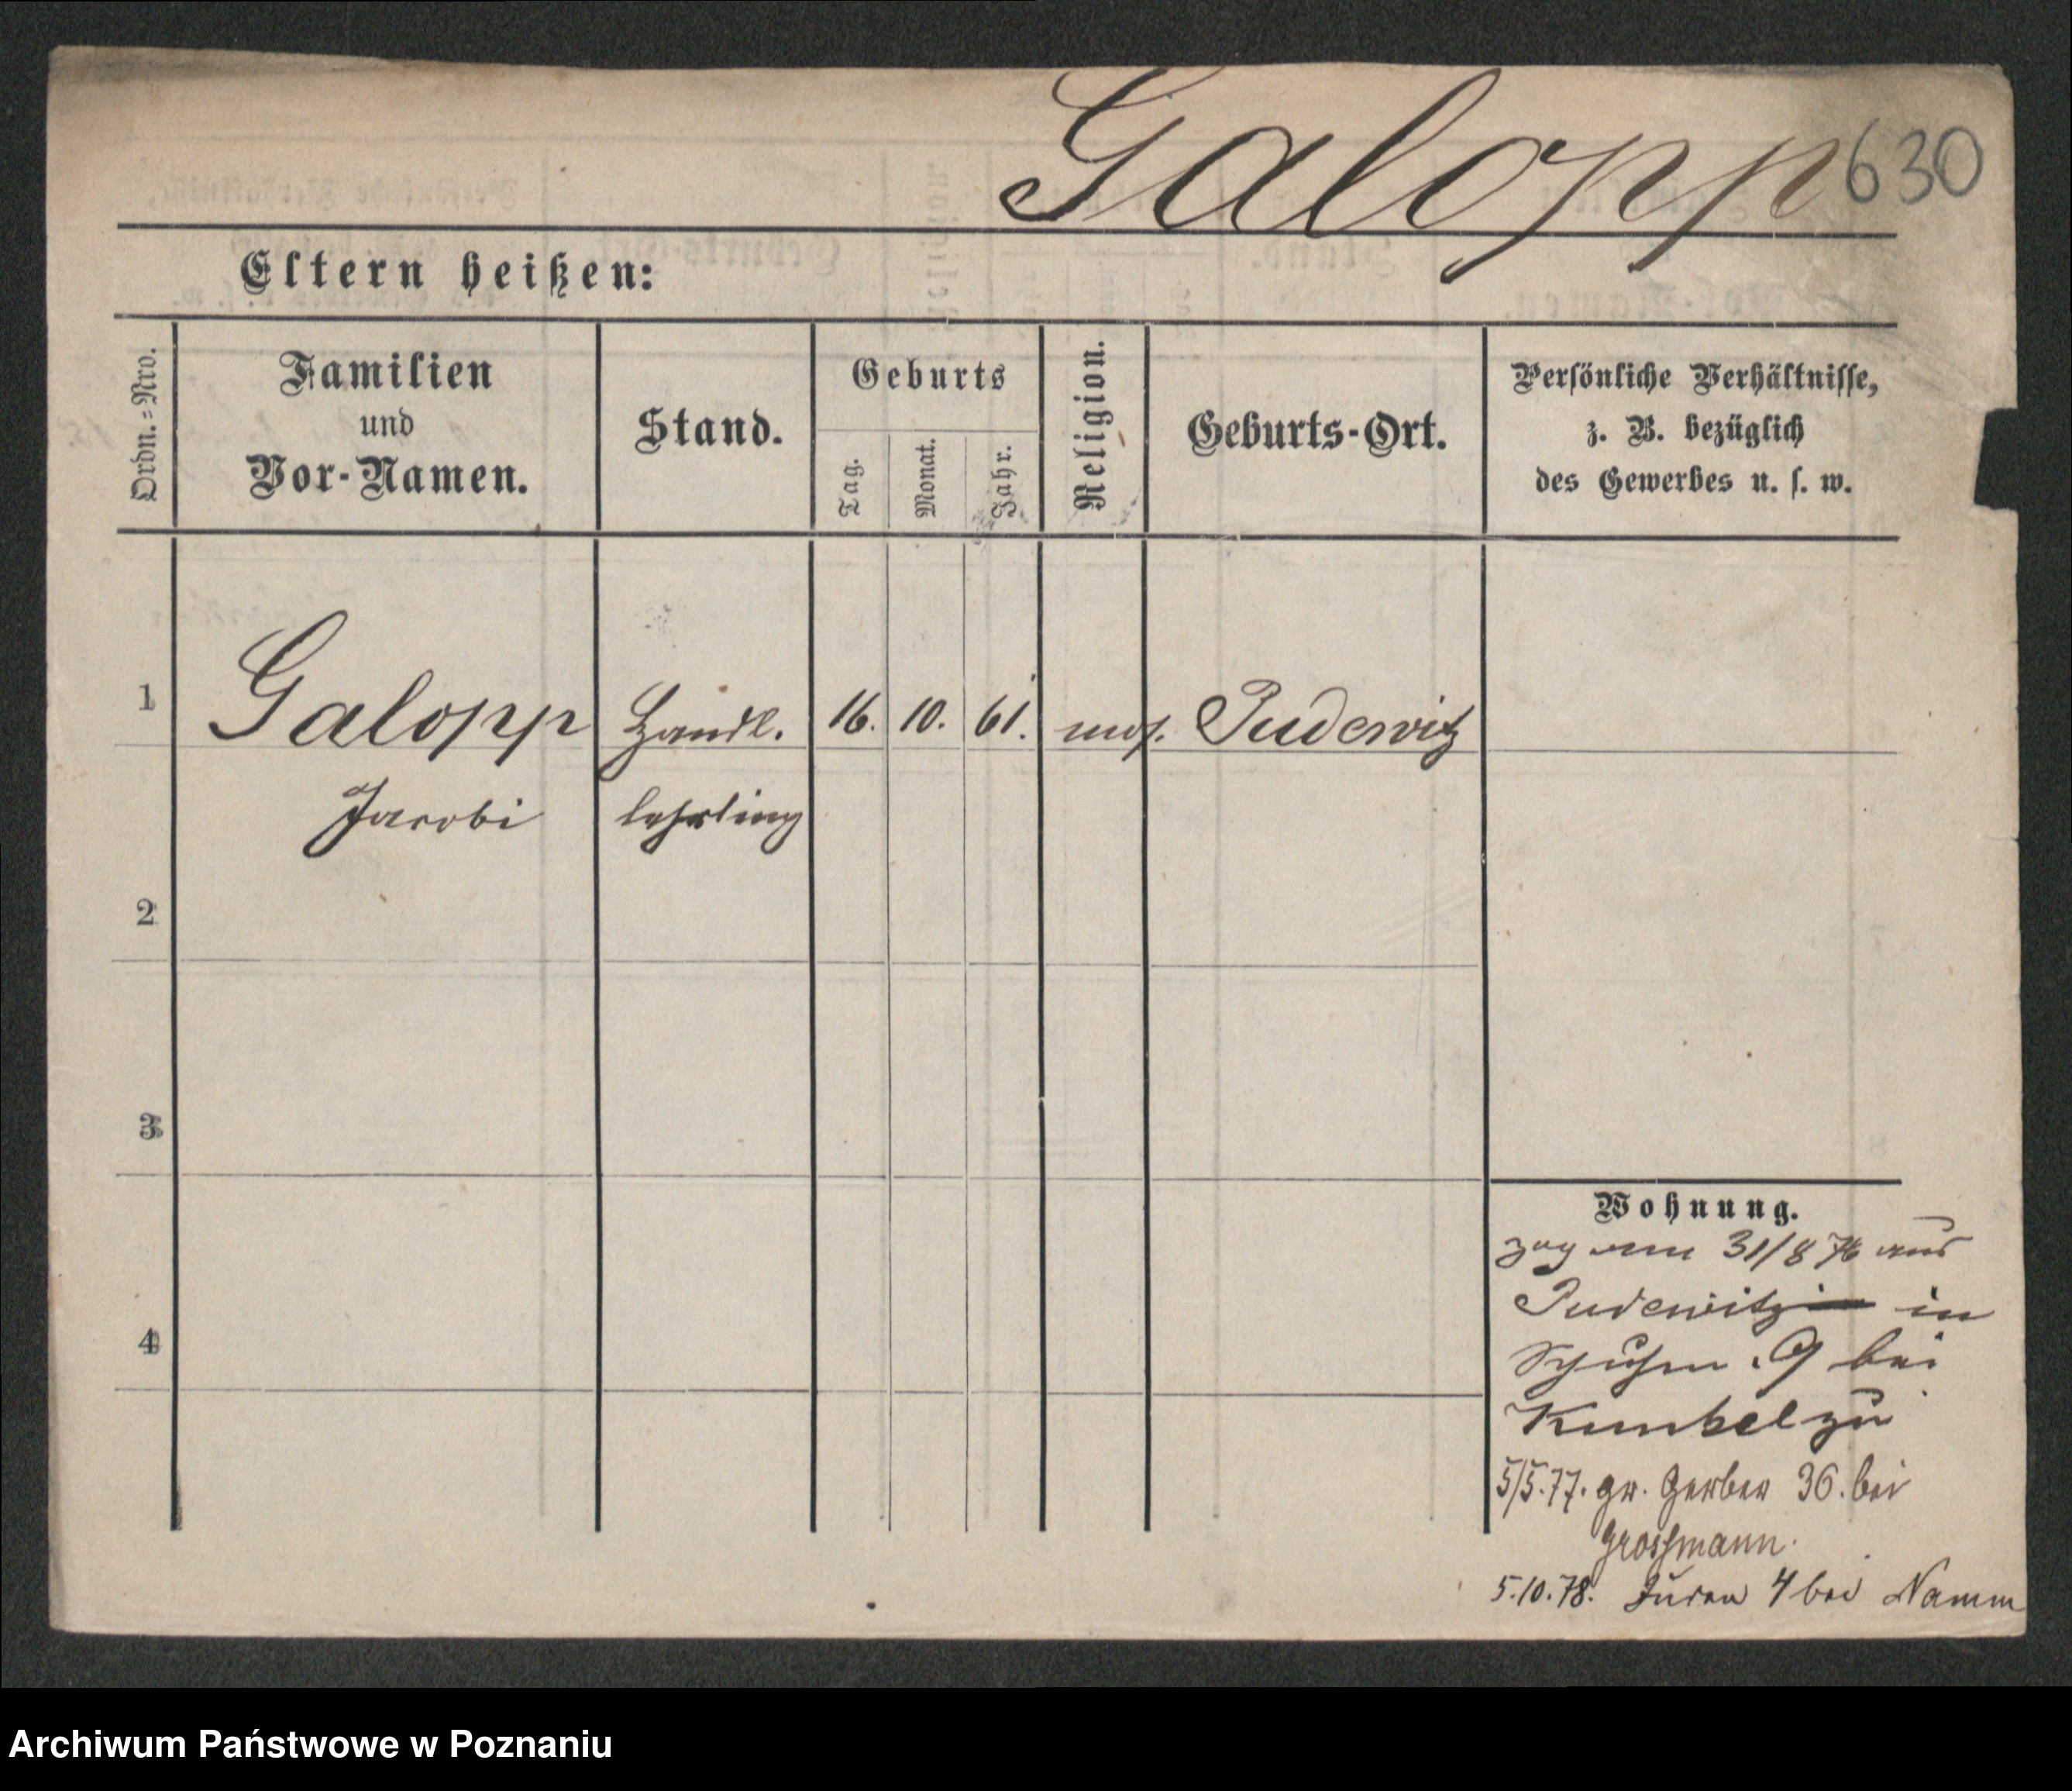 Galopp 630
Eltern heißen:
Ordn.-Nro.
Familien
und
Vor-Namen.
Stand.
Geburts
Tag.
Monat.
Jahr.
Religion.
Geburts-Ort.
Persönliche Verhältnisse,
z. B. bezüglich
des Gewerbes u. s. w.
1 Galopp Handl. 16. 10. 61. mos. Pudewitz
Jacobi lehrling
2
3
4
Wohnung.
zog am 31/8 76 aus
Pudewitz in
Schuhm. 9 bei
Kunkel zu
5/5.77. gr. Gerber 36. bei
Grossmann.
5.10.78. Juden 4 bei Namm
Archiwum Państwowe w Poznaniu